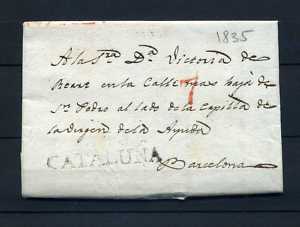 1835
A la Sra Da Victoria de
en la Calle mas baja de
Sn Pedro al lado de la Capilla de
la Virgen de la Ayuda
7
CATALUÑA
Barcelona